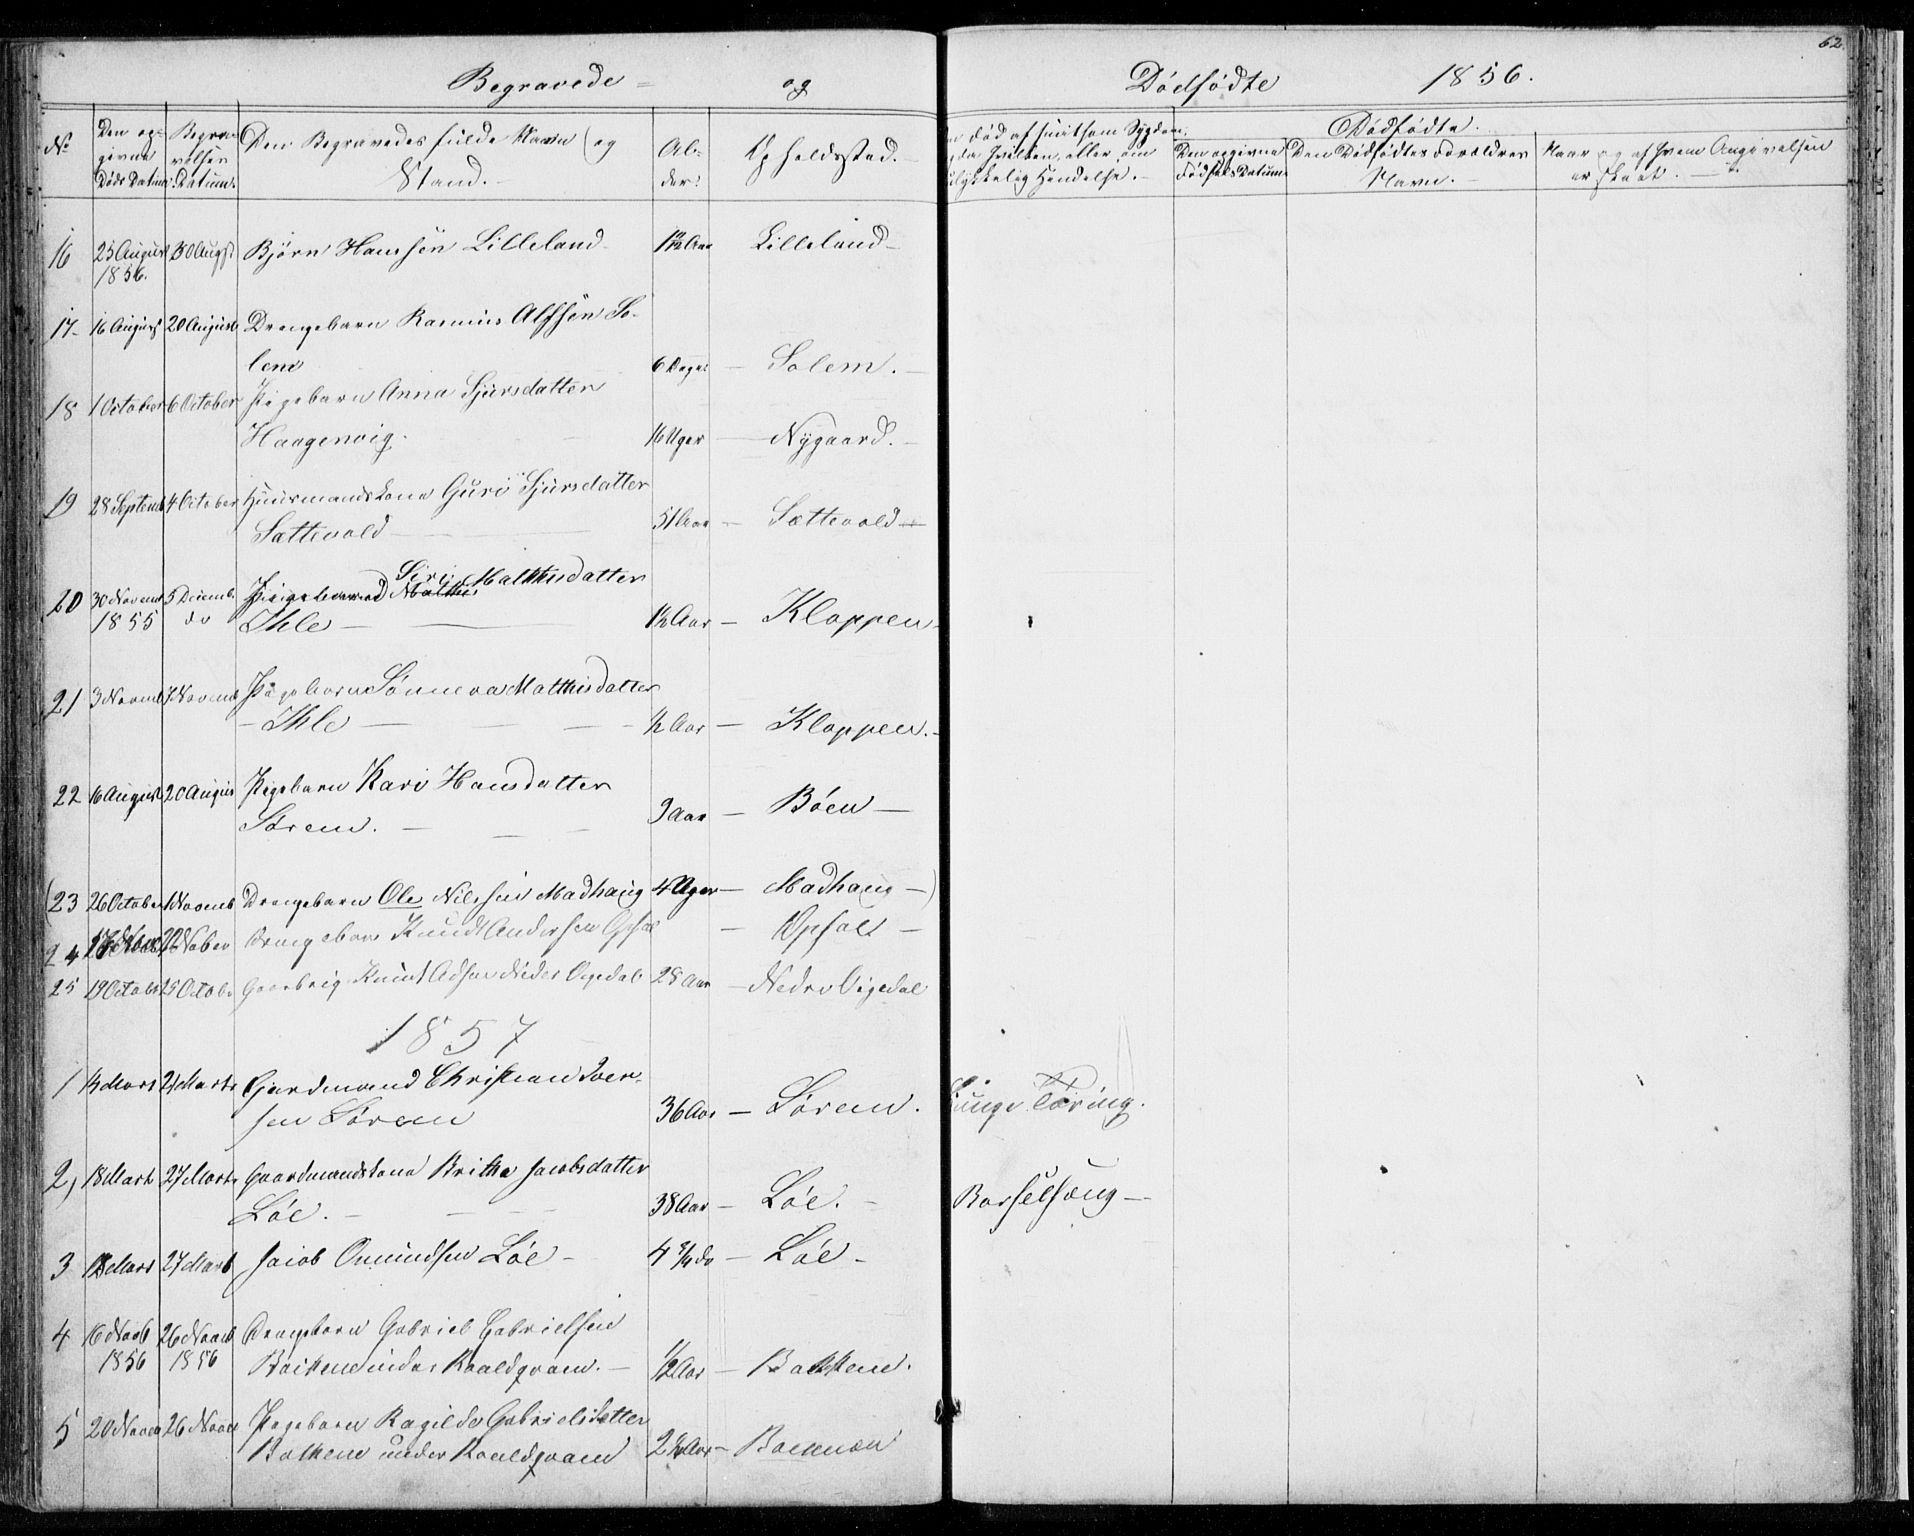 62.
Begravede = og Dødfødte 1856.
No Den opgivne Døds Datum. Begravelses Datum. Den Begravedes fulde Navn og Stand. Alder. Opholdsstad.
død af smitsom Sygdom, hvilken, eller om ulykkelig Hendelse.
Dødfødte.
Den opgivne Fødsels Datum. Den Dødfødtes Forældres Navn. Naar og af hvem Angivelsen er skeet.
16 25 August 30 Augst Bjørn Hansen Lilleland 1 Aar Lilleland
1856.
17 16 August 20 August Drengebarn Rasmus Alfsen So-
lem 6 Dage Solem.
18 1 October 6 October Pigebarn Anna Sjursdatter
Haagenvig. 16 Uger Nygaard.
19 28 Septemb 4 October Huusmandskone Guri Sjursdatter
Sættevold 51 Aar Sættevold
20 30 Novemb 5 Decemb. Pigebarn Siri Malthisdatter
1855 do Ihle 1½ Aar Kloppen
21 3 Novemb 7 Novemb Pigebarn Sønneva Malthisdatter
Ihle ½ Aar Kloppen.
22 16 August 20 August Pigebarn Kari Hansdatter
Sørem. 9 Aar Bøen
(23 26 October 1 Novemb Drengebarn Ole Nilssen Madhaug 4 Uger Madhaug)
24 22 Drengebarn Knudt Andersen Opsal Opsalt
25 19 Octobr 25 Octobr Knut Nedre Vigedal 28 Aar Nedre Vigedal
1857
1 Mars 21 Marts Gaardmand Christian Iver-
sen Sørem 36 Aar Sørem. Lunge Tæring.
2, 18 Mart 27 Marts Gaardmandskone Brithe Jacobsdatter
Løe. 38 Aar Løe. Barselsæng
3 18 Mars 27 Mart Jacob Omundsen Løe 4 do Løe
4 16 Novb 26 Novemb Drengebarn Gabriel Gabrielsen
1856 1856 Bakkene under Roaldqvam. ½ Aar Bakkene.
5 20 Novem 26 Novem Pigebarn Ragilde Gabrielsdatter
Bakkene under Roaldqvam 2½ Aar